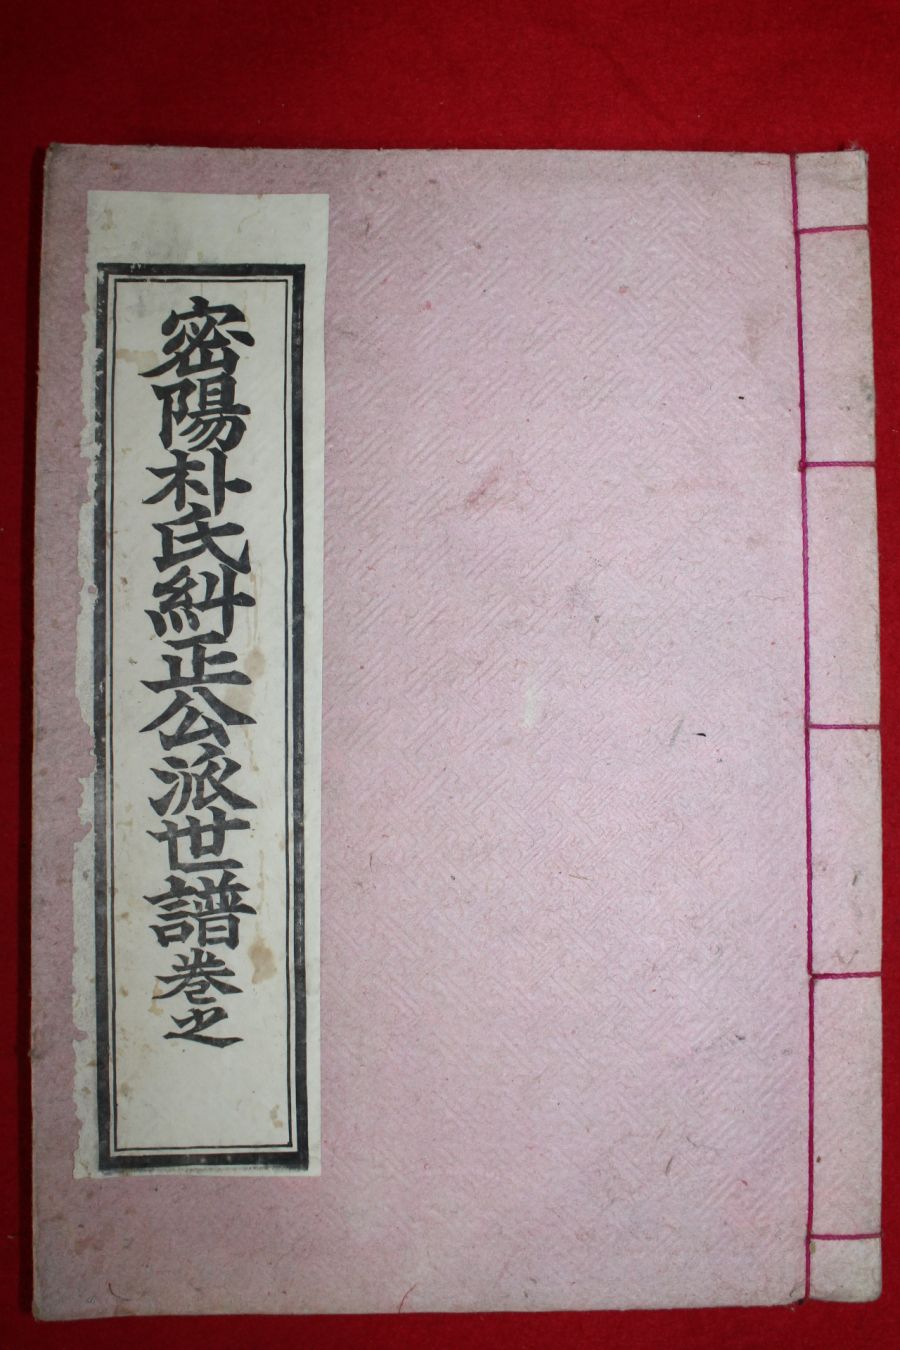 密陽朴氏糾正公派世譜卷之